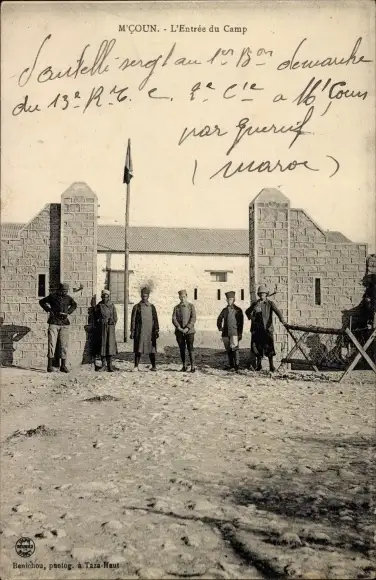 M'ÇOUN. - L'Entrée du Camp
Santelli sergt au 1er Bon demarche
du 13e R. T. C. 2e Cie a M'Coun
par Guercif
(maroc)
Benichou, photog. à Taza-Haut